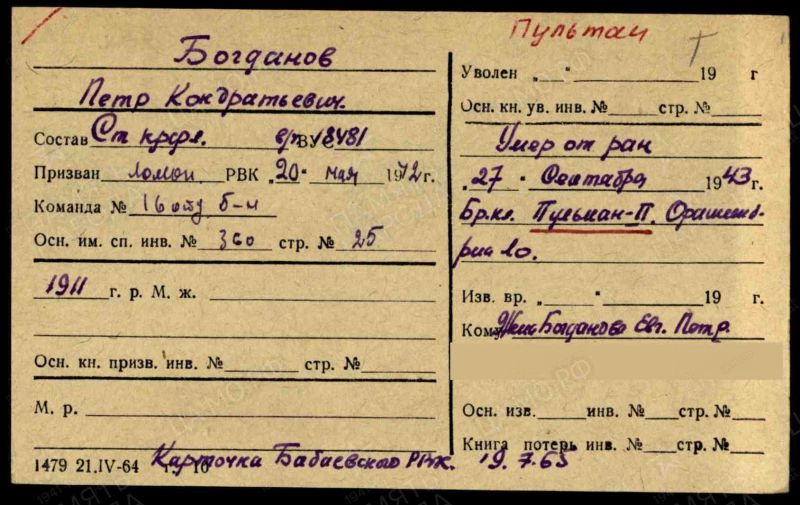 Богданов
Петр Кондратьевич
Состав Ст крф. ВУС
Призван РВК „20“ мая 1942 г.
Команда № 16
Осн. им. сп. инв. № 360 стр. № 25
1911 г. р. М. ж.
Осн. кн. призв. инв. № стр. №
М. р.
1479 21.IV-64
Карточка Бабаевского РВК. 19.7.65
Пультан
Уволен „ “ 19 г
Осн. кн. ув. инв. № стр. №
Умер от ран
„27“ Сентября 1943 г.
Пульман-П.
Изв. вр. „ “ 19 г.
Кому Жена Богданова Евг. Петр.
Осн. изв. инв. № стр. №
Книга потерь инв. № стр. №